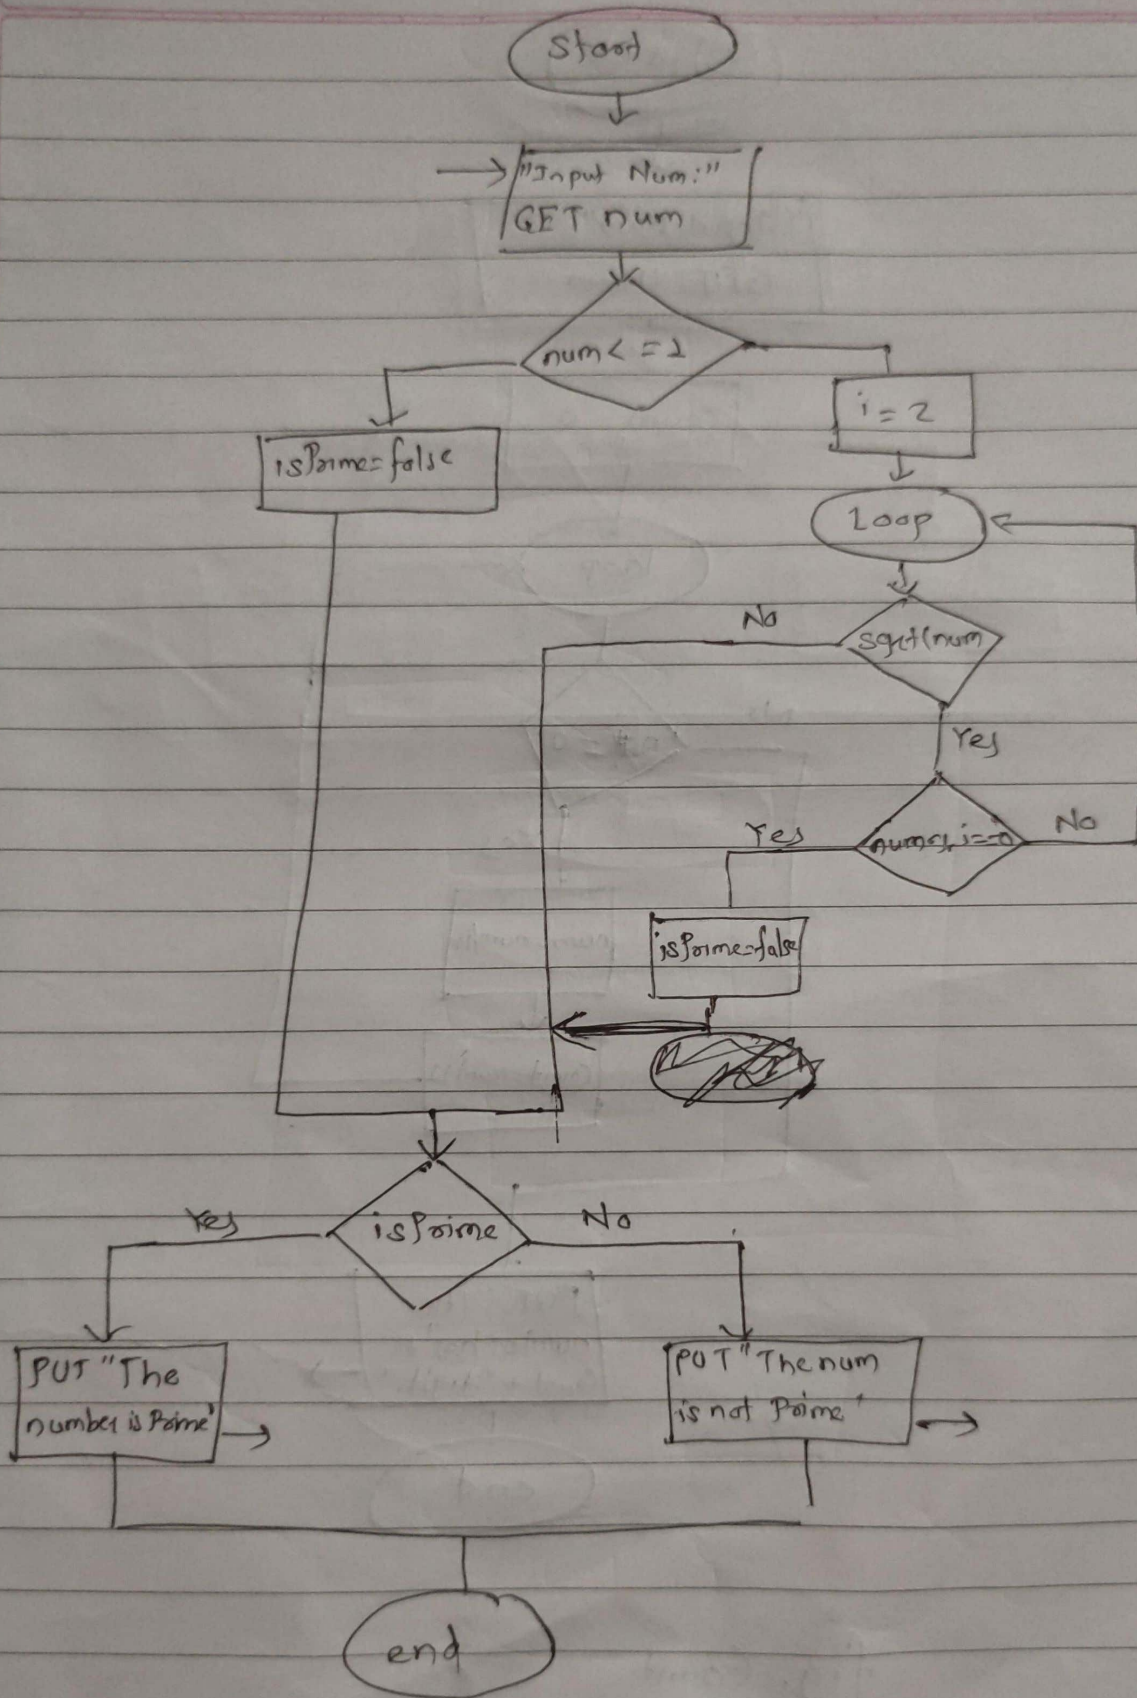 Start
"Input Num:"
GET num
num<=1
i=2
isPrime=false
Loop
No
sqrt(num
Yes
Yes
num%i==0
No
isPrime=false
Yes
isPrime
No
PUT "The
number is Prime"
PUT "The num
is not Prime"
end